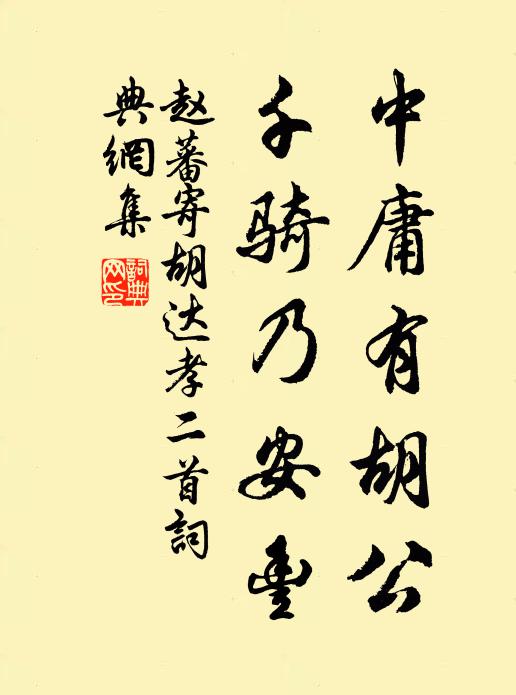 中庸有胡公
千骑乃安豊
赵蕃寄胡达孝二首詞
典網集
詞典网印